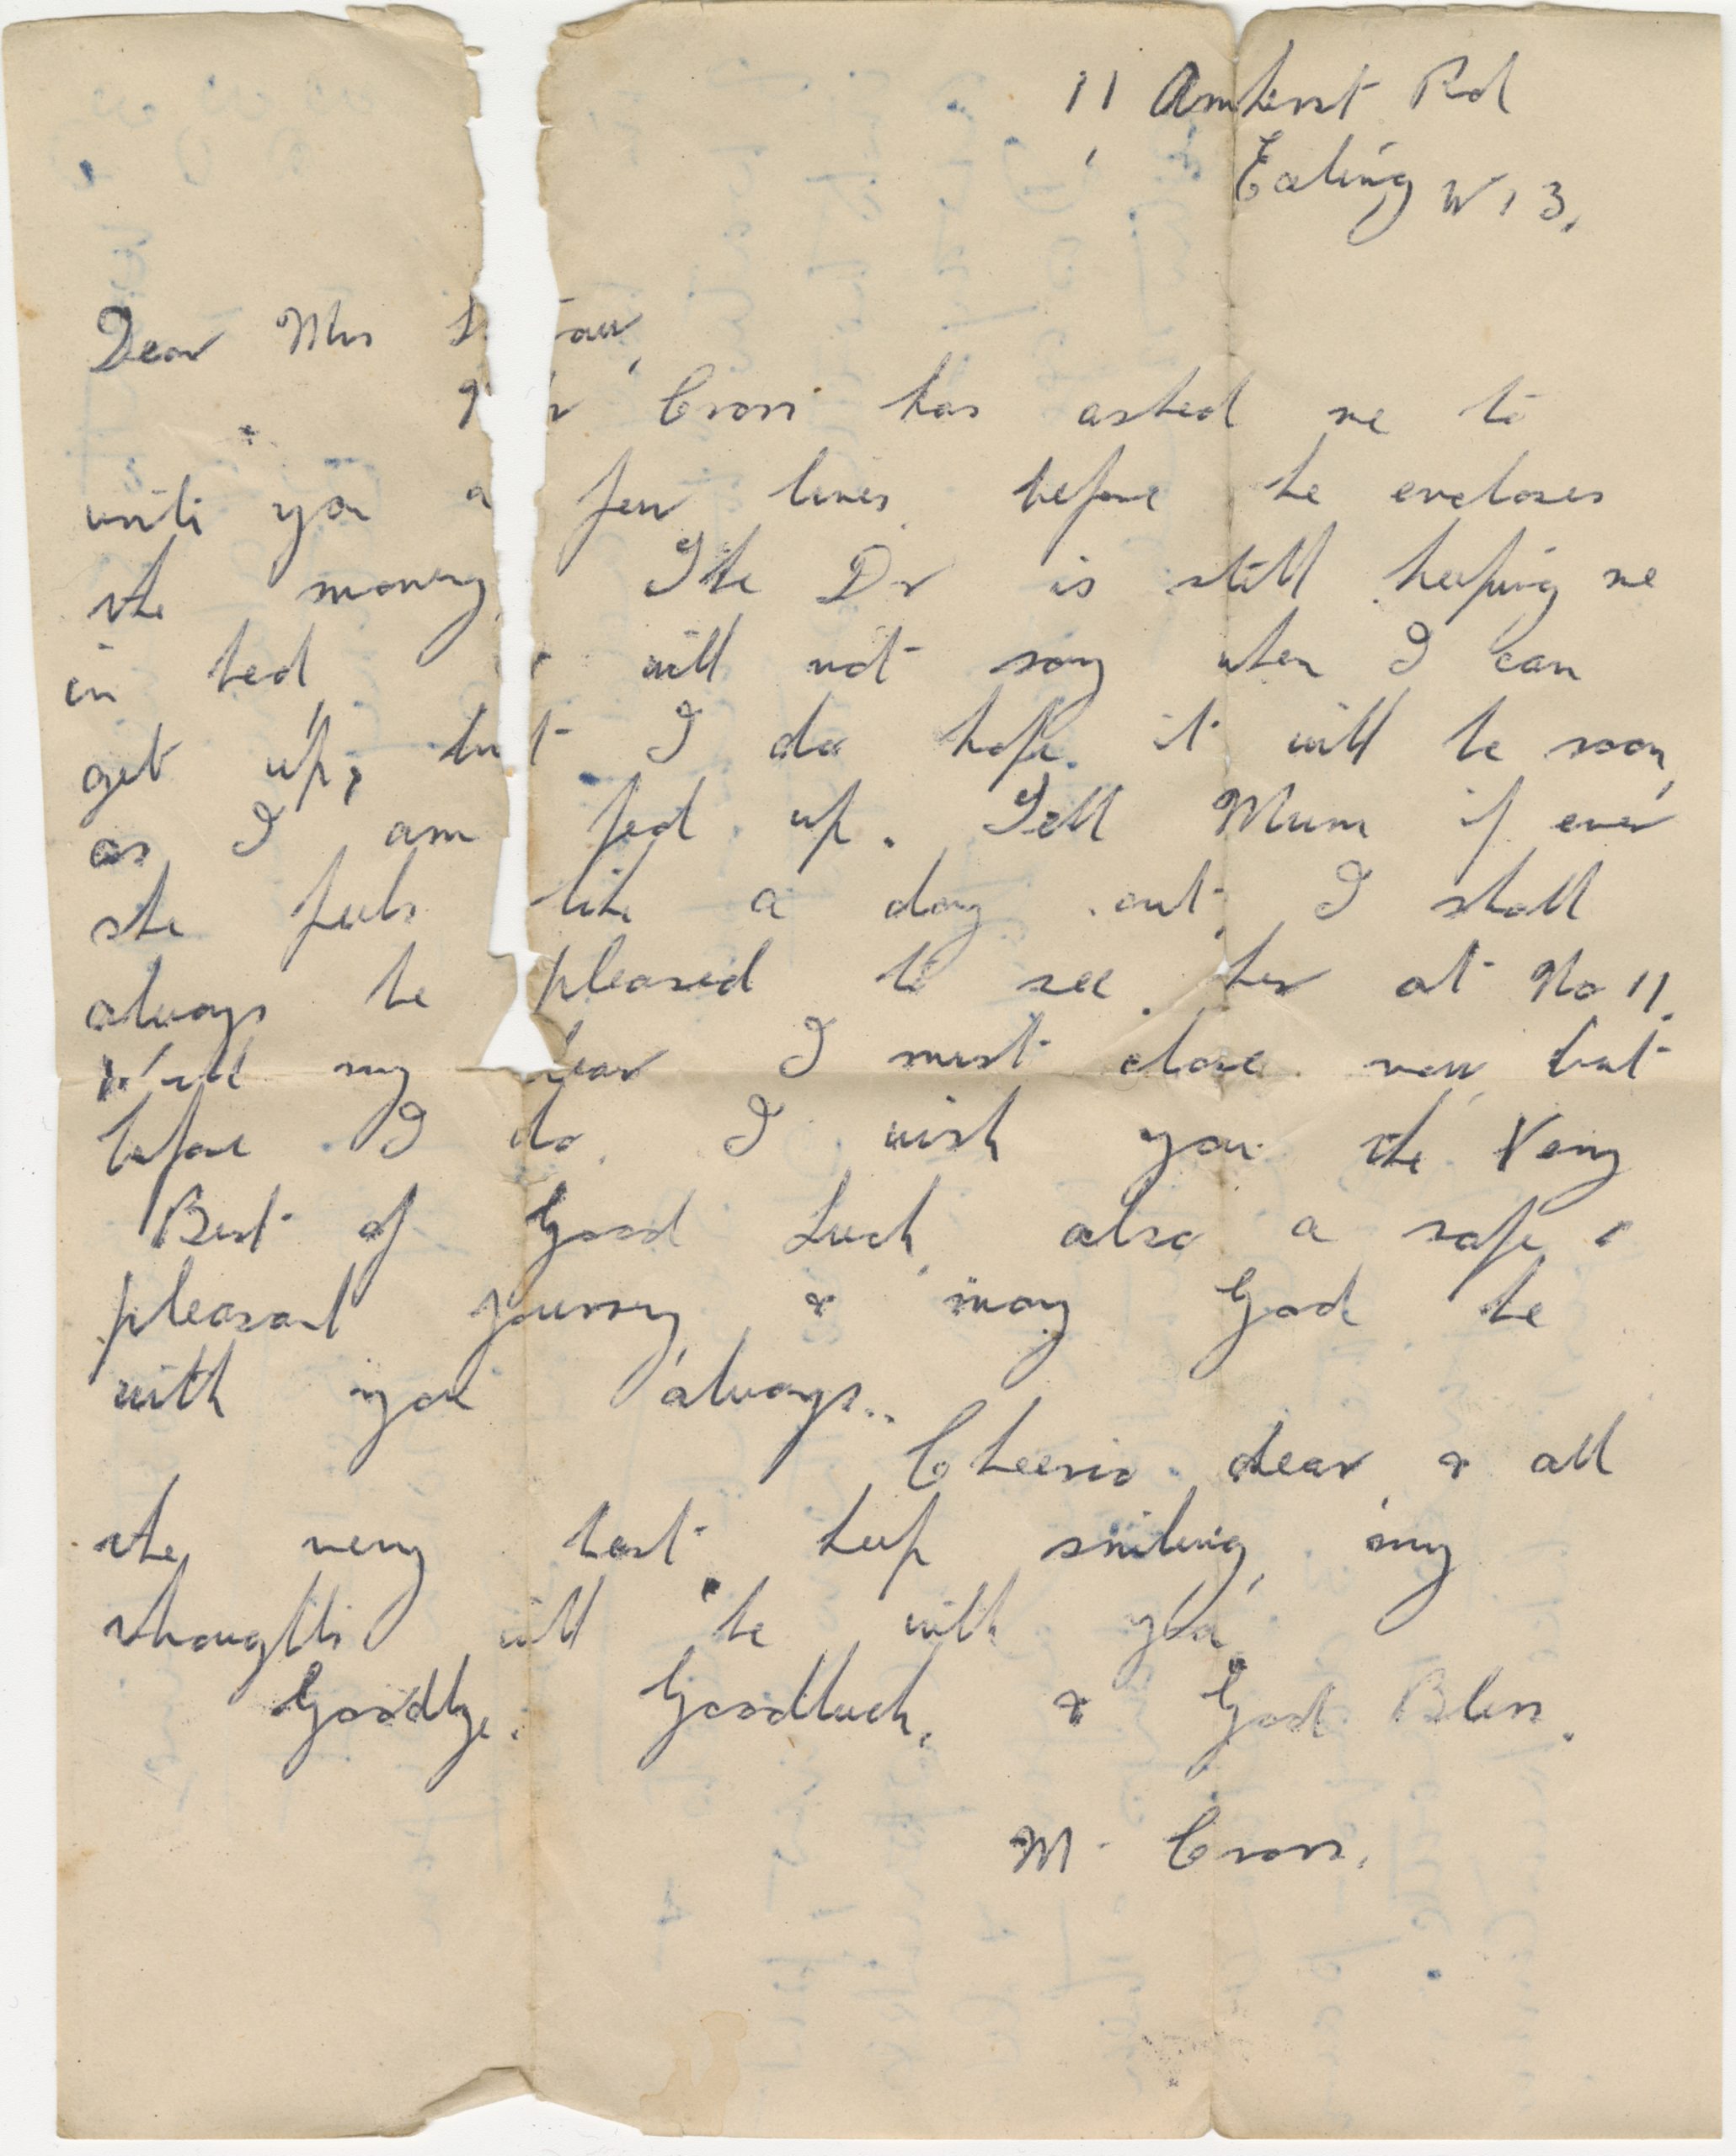 11 Amherst Rd
Ealing W13.
Dear Mrs
Cross has asked me to
write you a few lines before he encloses
the money. The Dr is still keeping me
in bed will not say when I can
get up, but I do hope it will be soon,
as I am fed up. Tell Mum if ever
she feels like a day out, I shall
always be pleased to see her at No 11.
Well my dear I must close now, but
before I do. I wish you the Very
Best of Good Luck, also a safe &
pleasant journey, & may God be
with you always..
Cheerio dear, & all
the very best, keep smiling, my
thoughts will be with you.
Goodbye. Goodluck. & God Bless.
M. Cross.